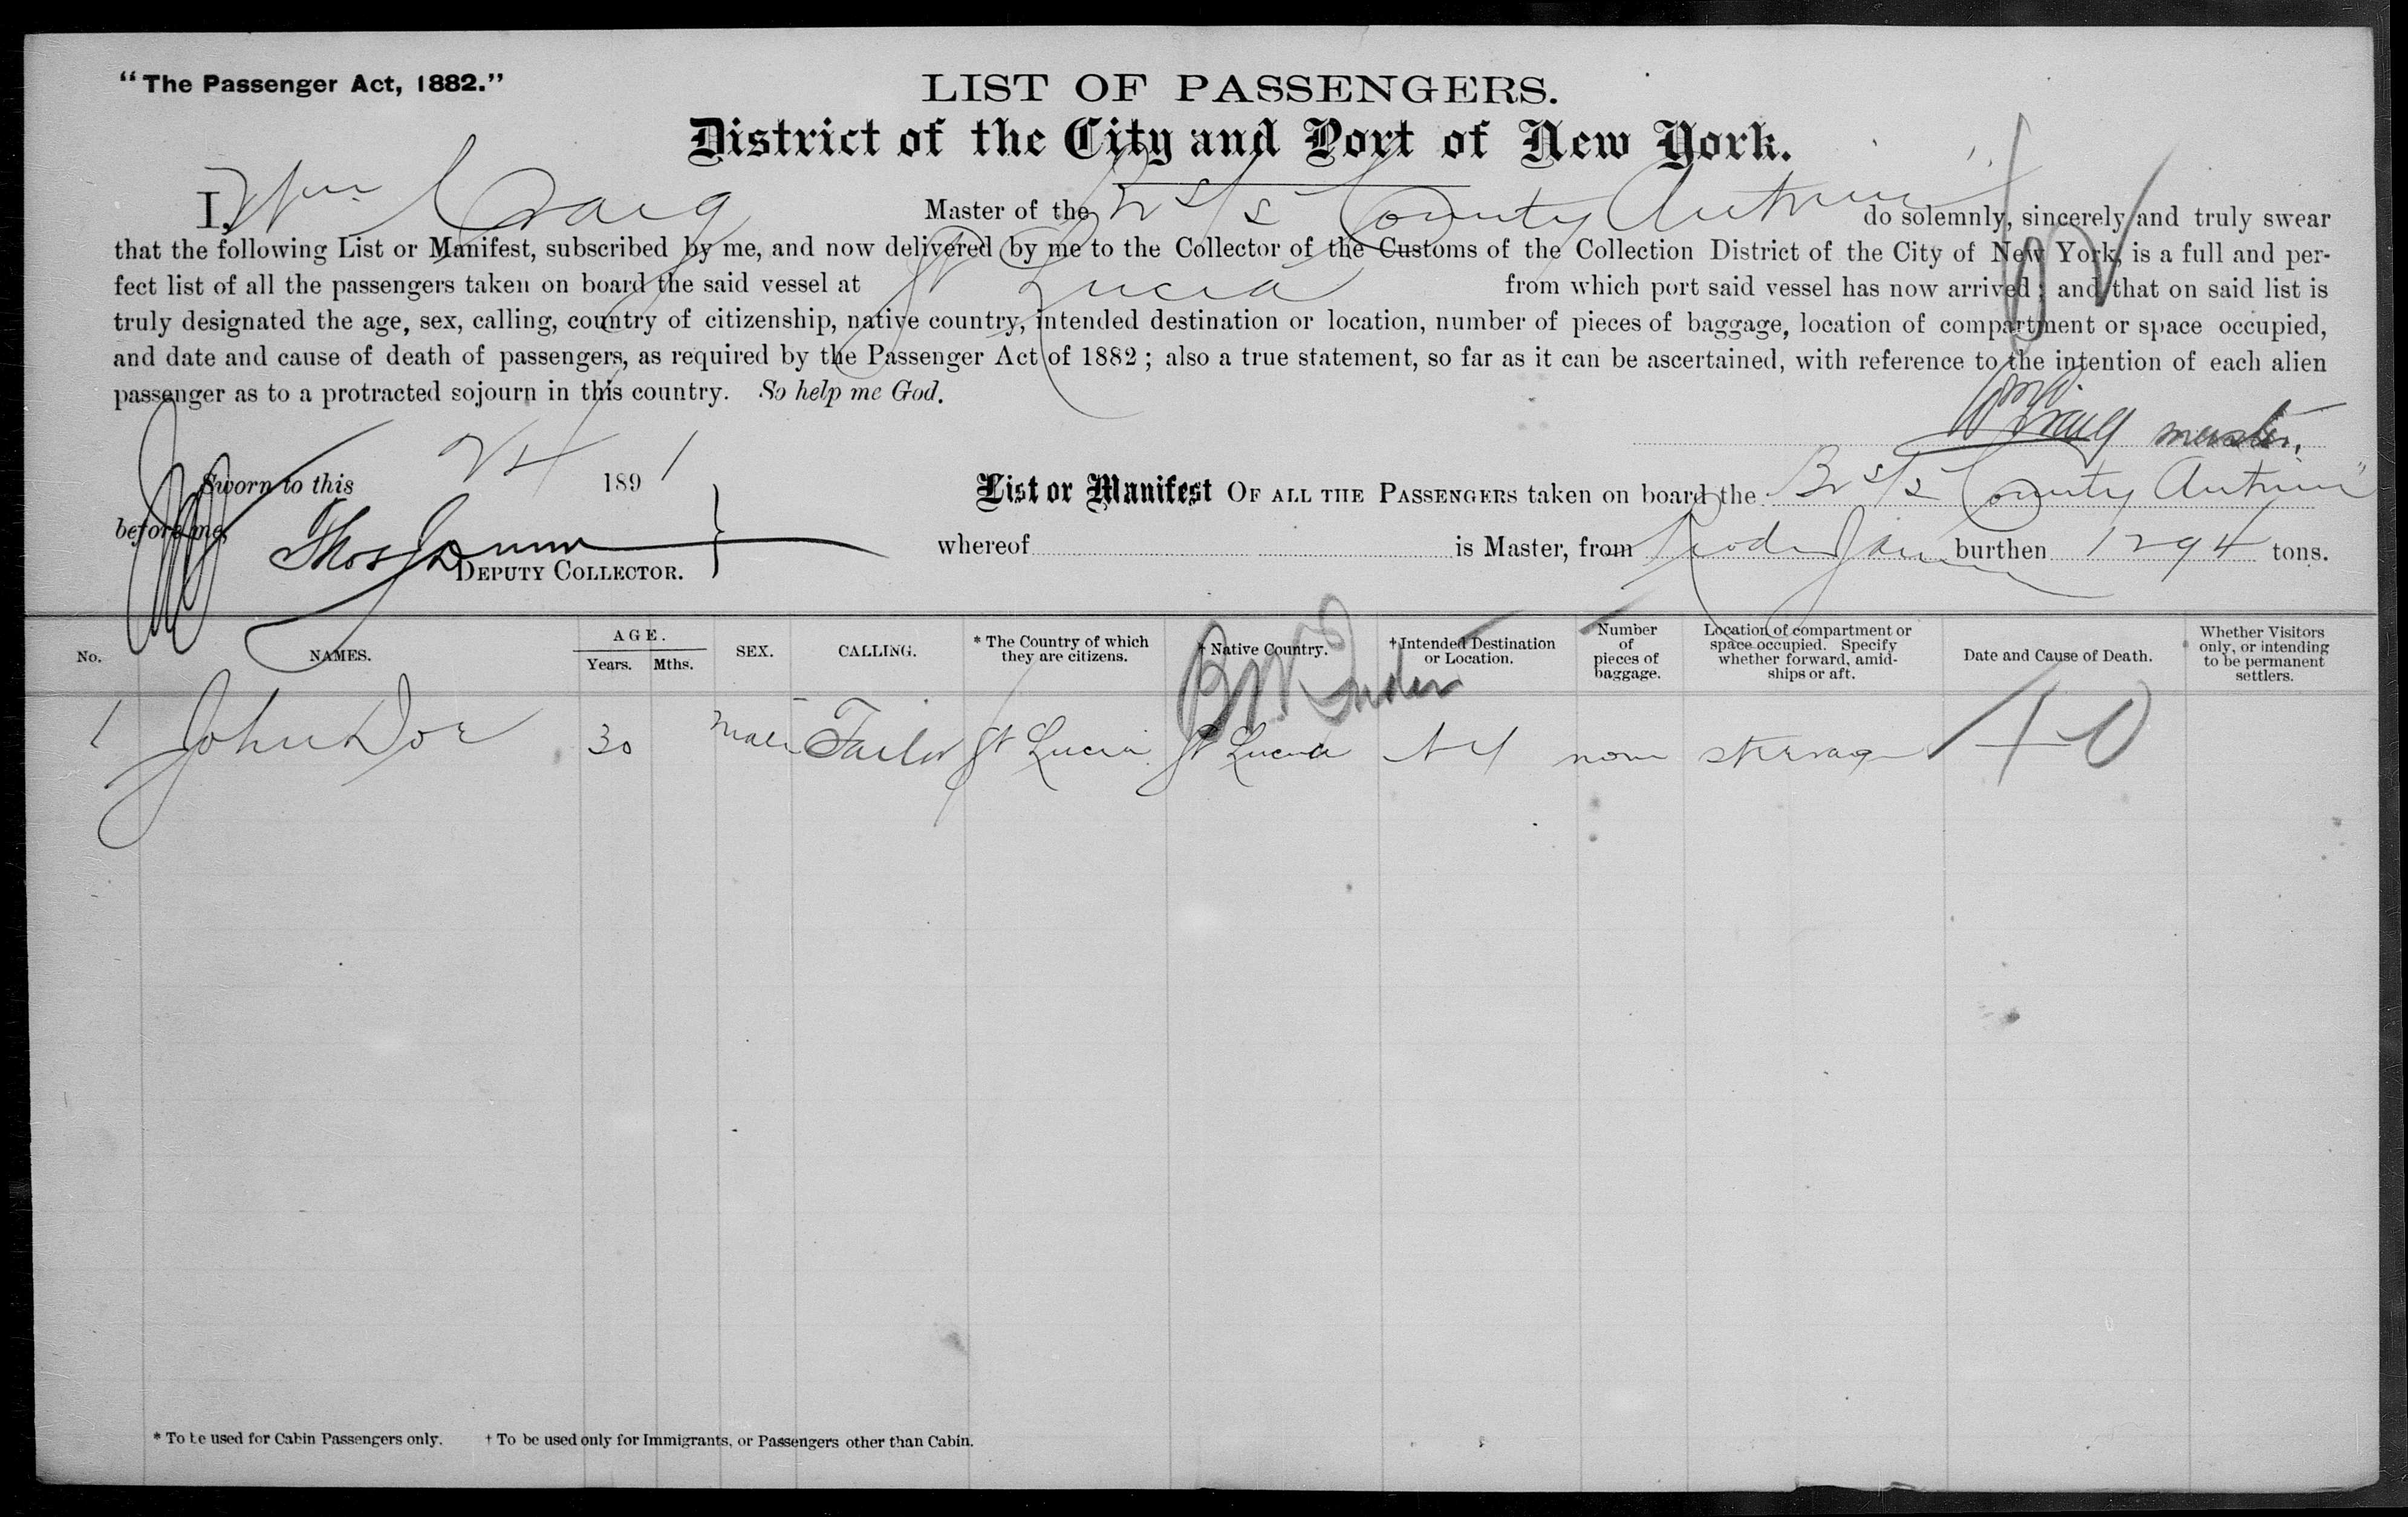 "The Passenger Act, 1882."
LIST OF PASSENGERS.
District of the City and Port of New York.
I, Wm Craig Master of the Br S/S County Antrim do solemnly, sincerely and truly swear
that the following List or Manifest, subscribed by me, and now delivered by me to the Collector of the Customs of the Collection District of the City of New York, is a full and per-
fect list of all the passengers taken on board the said vessel at St Lucia from which port said vessel has now arrived; and that on said list is
truly designated the age, sex, calling, country of citizenship, native country, intended destination or location, number of pieces of baggage, location of compartment or space occupied,
and date and cause of death of passengers, as required by the Passenger Act of 1882; also a true statement, so far as it can be ascertained, with reference to the intention of each alien
passenger as to a protracted sojourn in this country. So help me God.
Wm Craig master.
Sworn to this 1891
before me,
Thos
DEPUTY COLLECTOR.
List or Manifest OF ALL THE PASSENGERS taken on board the Br S/S County Antrim"
whereof is Master, from burthen 1294 tons.
No. NAMES. AGE. Years. Mths. SEX. CALLING. * The Country of which they are citizens. † Native Country. † Intended Destination or Location. Number of pieces of baggage. Location of compartment or space occupied. Specify whether forward, amid-ships or aft. Date and Cause of Death. Whether Visitors only, or intending to be permanent settlers.
1 John Doe 30 male Tailor St Lucia St Lucia NY none steerage
* To be used for Cabin Passengers only. † To be used only for Immigrants, or Passengers other than Cabin.